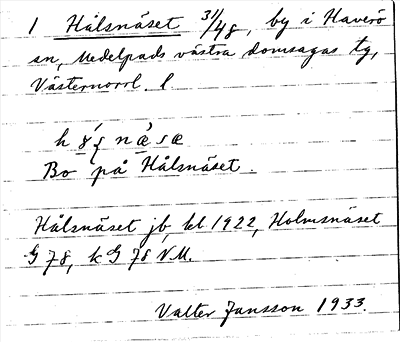 1 Hålsnäset 31/48, by i Haverö
sn, Medelpads västra domsagas tg,
Västernorrl. l.
Bo på Hålsnäset.
Hålsnäset jb, kl 1922, Holmsnäset
G 78, k G 78 NM.
Valter Jansson 1933.